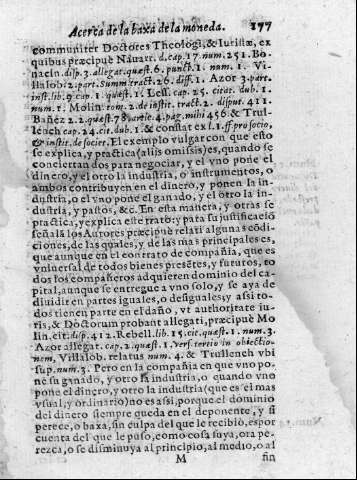 Acerca de la baxa de la moneda. 177
communiter Doctores Theologi, & Iuristæ, ex
quibus præcipuè Nauarr. d. cap. 17. num. 251. Bo-
nacin. disp. 3. allegat. quæst. 6. punct. 1. num. 1. Vi-
llalob. 2. part. Summ. tract. 26. diff. 1. Azor 3. part.
inst. lib. 9. cap. 1. quæst. 1. Less. cap. 25. citat. dub. 1.
num. 1. Molin. tom. 2. de instit. tract. 2. disput. 411.
Bañez 2. 2. quæst. 78. artic. 4. pag. mihi 456. & Trul-
lench cap. 24. cit. dub. 1. & constat ex l. 1. ff. pro socio,
& instit. de societ. El exemplo vulgar con que esto
se explica, y practica (alijs omissis) es, quando se
conciertan dos para negociar, y el vno pone el
dinero, y el otro la industria, o instrumentos, o
ambos contribuyen en el dinero, y ponen la in-
dustria, o el vno pone el ganado, y el otro la in-
dustria, y pastos, &c. En esta manera, y otras se
practica, y explica este trato; y para su justificació
señalā los Autores præcipuè relati algunas cōdi-
ciones, de las quales, y de las mas principales es,
que aunque en el contrato de compañia, que es
vniuersal de todos bienes presētes, y futuros, to
dos los compañeros adquieren dominio del ca-
pital, aunque se entregue a vno solo, y se aya de
diuidir en partes iguales, o desiguales, y assi to-
dos tienen parte en el daño, vt authoritate iu-
ris, & Doctorum probant allegati, præcipuè Mo
lin. cit. disp. 412. Rebell. lib. 15. cit. quæst. 1. num. 3.
Azor allegat. cap. 2. quæst. 1. vers. tertio in obiectio-
nem, Villalob. relatus num. 4. & Trullench vbi
sup. num. 3. Pero en la compañia en que vno po-
ne su ganado, y otro la industria, o quando vno
pone el dinero, y otro la industria (que es el mas
vsual, y ordinario) no es assi, porque el dominio
del dinero siempre queda en el deponente, y si
perece, o baxa, sin culpa del que le recibió, es por
cuenta del que le puso, como cosa suya, ora pe-
rezca, o se disminuya al principio, al medio, o al
M fin